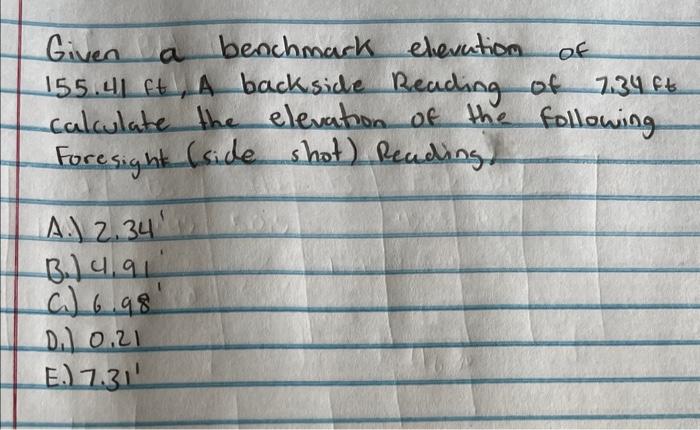 Given a benchmark elevation of
155.41 ft, A backside Reading of 7.34 ft
calculate the elevation of the following
Foresight (side shot) Reading.
A.) 2.34'
B.) 4.91'
C.) 6.98'
D.) 0.21
E.) 7.31'